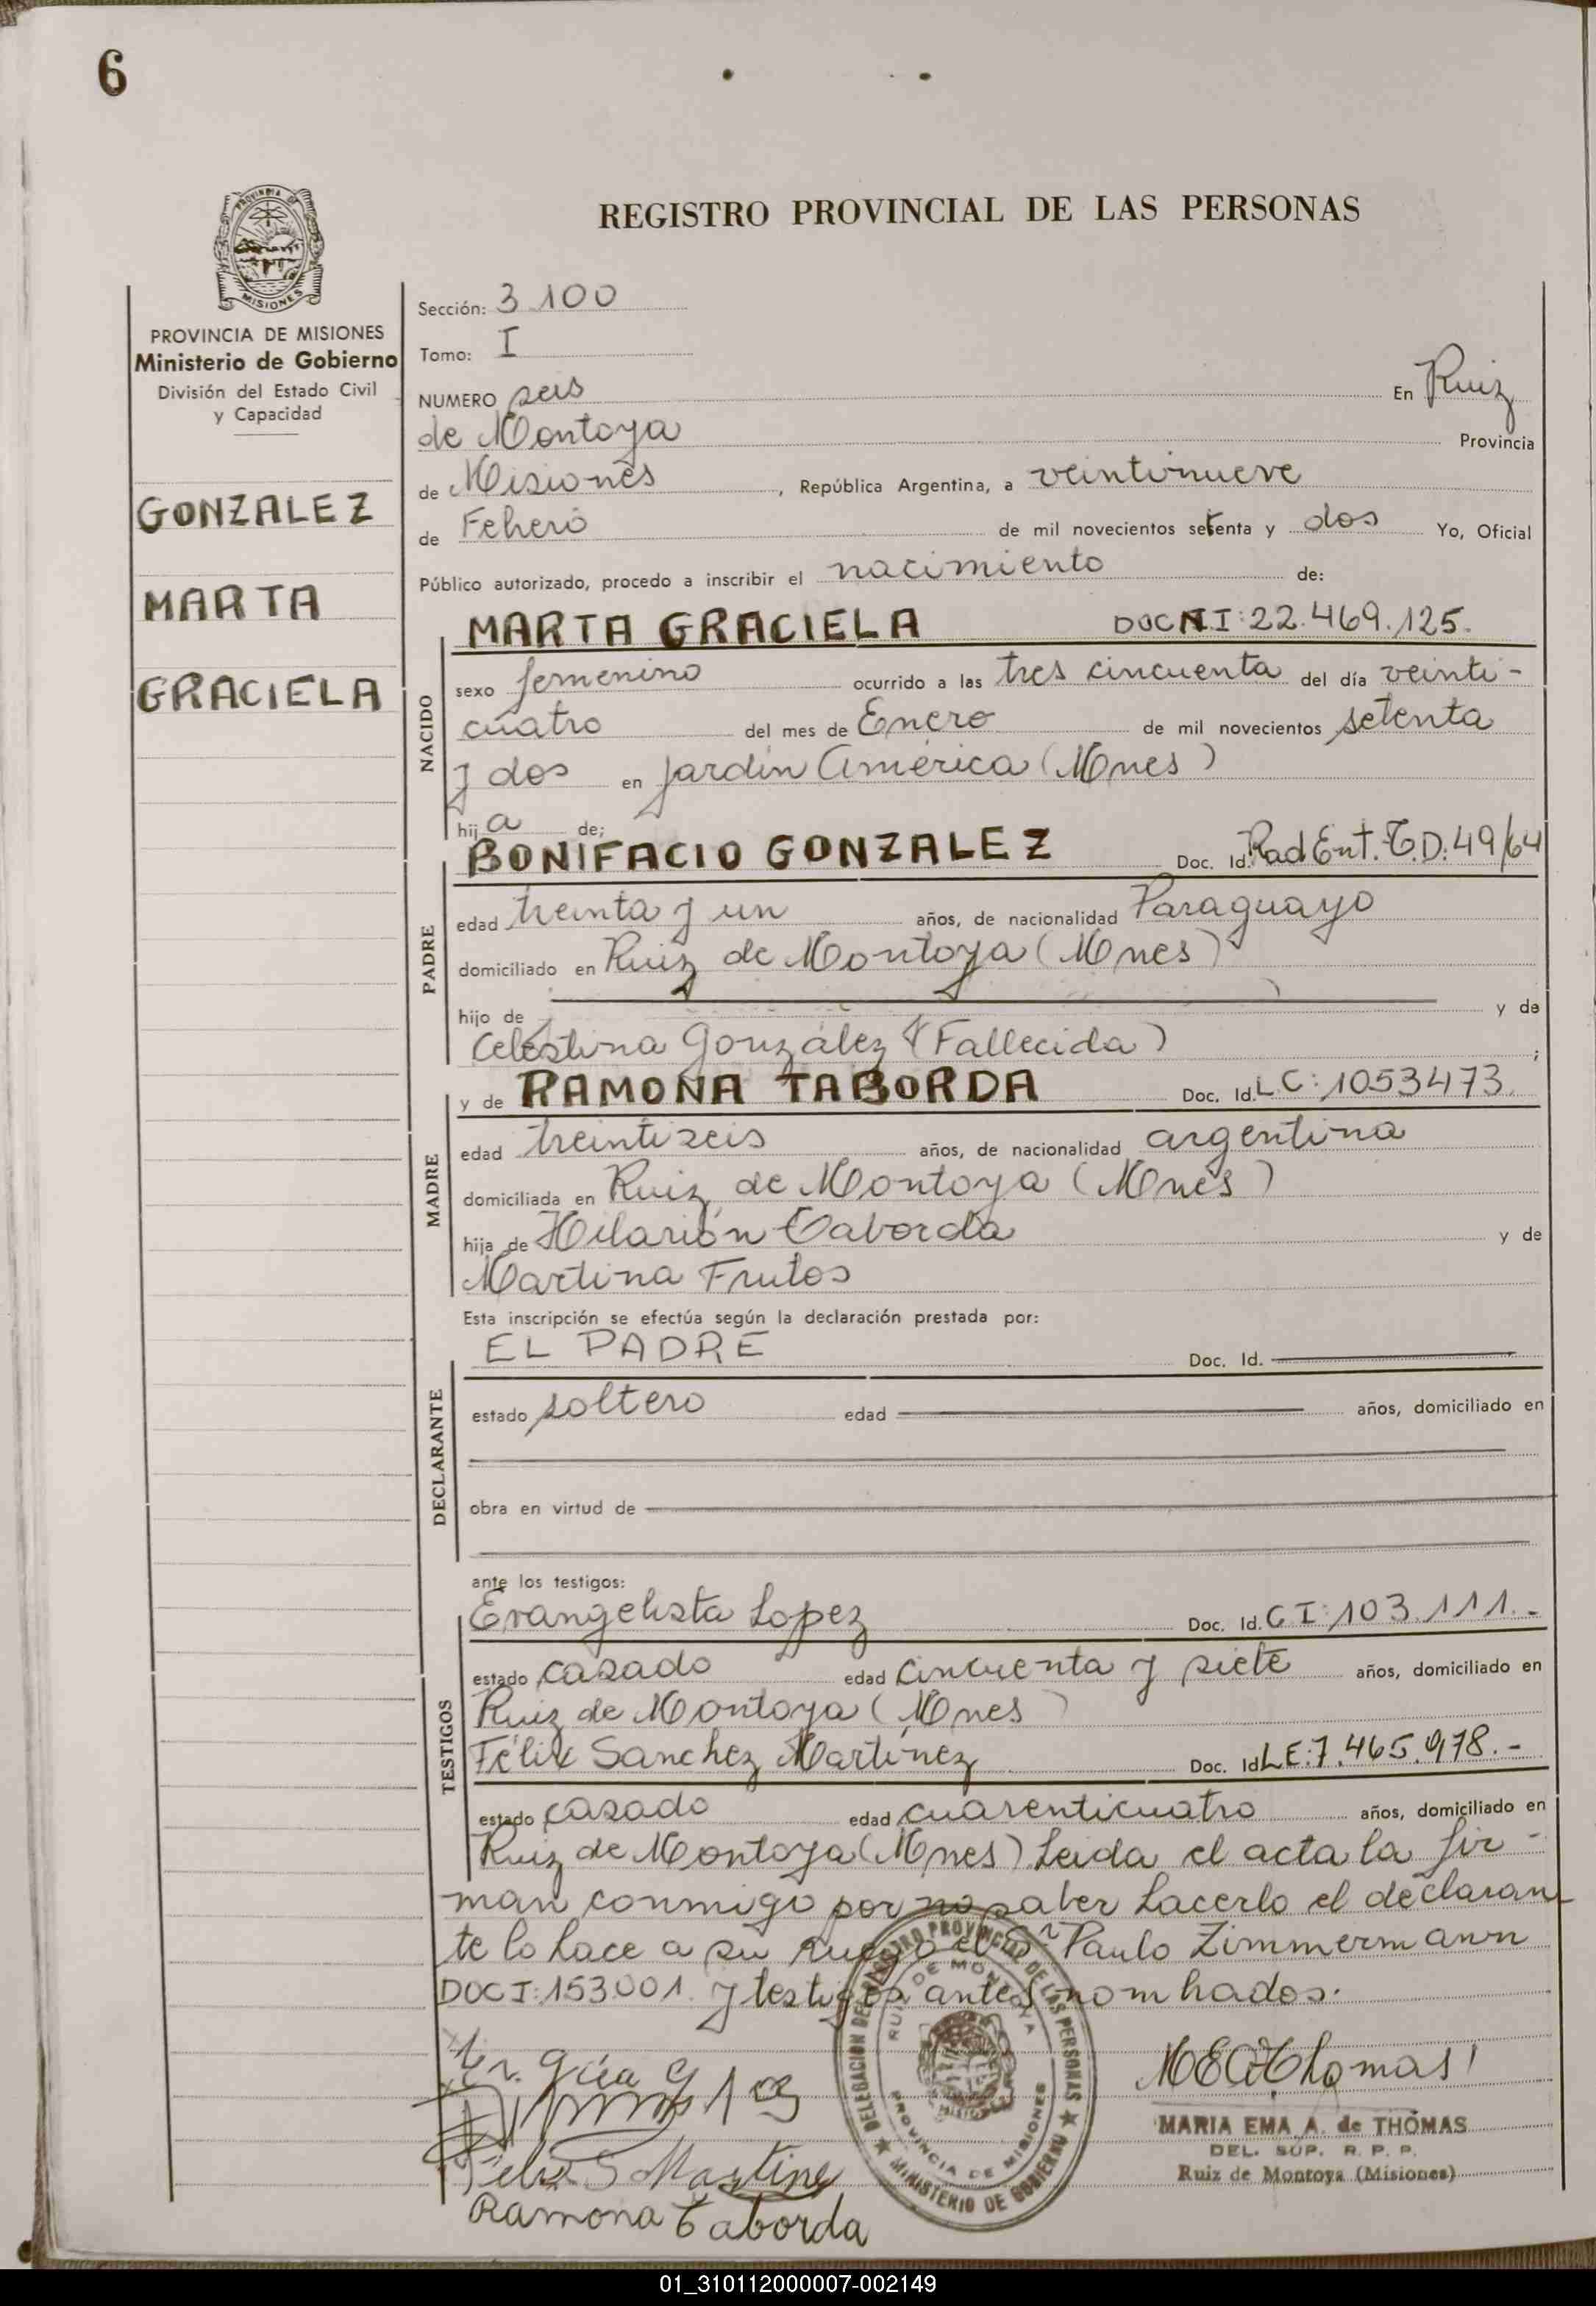 6
REGISTRO PROVINCIAL DE LAS PERSONAS
PROVINCIA MISIONES
PROVINCIA DE MISIONES
Ministerio de Gobierno
División del Estado Civil
y Capacidad
GONZALEZ
MARTA
GRACIELA
Sección: 3100
Tomo: I
NUMERO seis En Ruiz
de Montoya Provincia
de Misiones, República Argentina, a veintinueve
de Febrero de mil novecientos setenta y dos Yo, Oficial
Público autorizado, procedo a inscribir el nacimiento de:
NACIDO
MARTA GRACIELA DOCNI:22.469.125.
sexo femenino ocurrido a las tres cincuenta del día veinti-
cuatro del mes de Enero de mil novecientos setenta
y dos en Jardín América (Mnes)
hija de;
PADRE
BONIFACIO GONZALEZ Doc. Id. Rad Ent. T.D. 49/64
edad treinta y un años, de nacionalidad Paraguayo
domiciliado en Ruiz de Montoya (Mnes)
hijo de y de
Celestina González (Fallecida) ;
MADRE
y de RAMONA TABORDA Doc. Id. L C: 1053473.
edad treintiseis años, de nacionalidad argentina
domiciliada en Ruiz de Montoya (Mnes)
hija de Hilarión Taborda y de
Martina Frutos
Esta inscripción se efectúa según la declaración prestada por:
DECLARANTE
EL PADRE Doc. Id.
estado soltero edad años, domiciliado en
obra en virtud de
ante los testigos:
TESTIGOS
Evangelista Lopez Doc. Id. C I: 103.111.-
estado casado edad cincuenta y siete años, domiciliado en
Ruiz de Montoya (Mnes)
Félix Sanchez Martínez Doc. Id LE:7.465.978.-
estado casado edad cuarenticuatro años, domiciliado en
Ruiz de Montoya (Mnes) Leida el acta la fir-
man conmigo por no saber hacerlo el declaran
te lo hace a su ruego el Sr Paulo Zimmermann
DOC I: 153001. y testigos antes nombrados.
DELEGACION DEL REGISTRO PROVINCIAL DE LAS PERSONAS
RUIZ DE MONTOYA
PROVINCIA DE MISIONES
MINISTERIO DE GOBIERNO
MEAThomas
MARIA EMA A. de THOMAS
DEL. SUP. R. P. P.
Ruiz de Montoya (Misiones)
Felix S Martine
Ramona Taborda
01_310112000007-002149